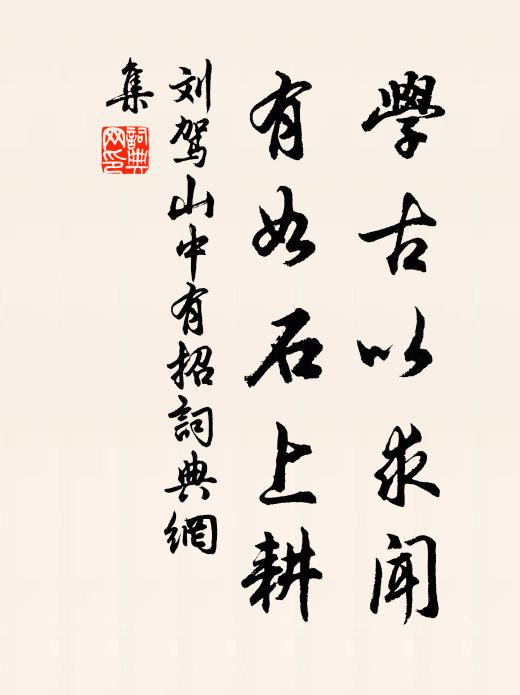 學古以求聞
有如石上耕
刘駕山中有招詞典網
集
詞典
网印